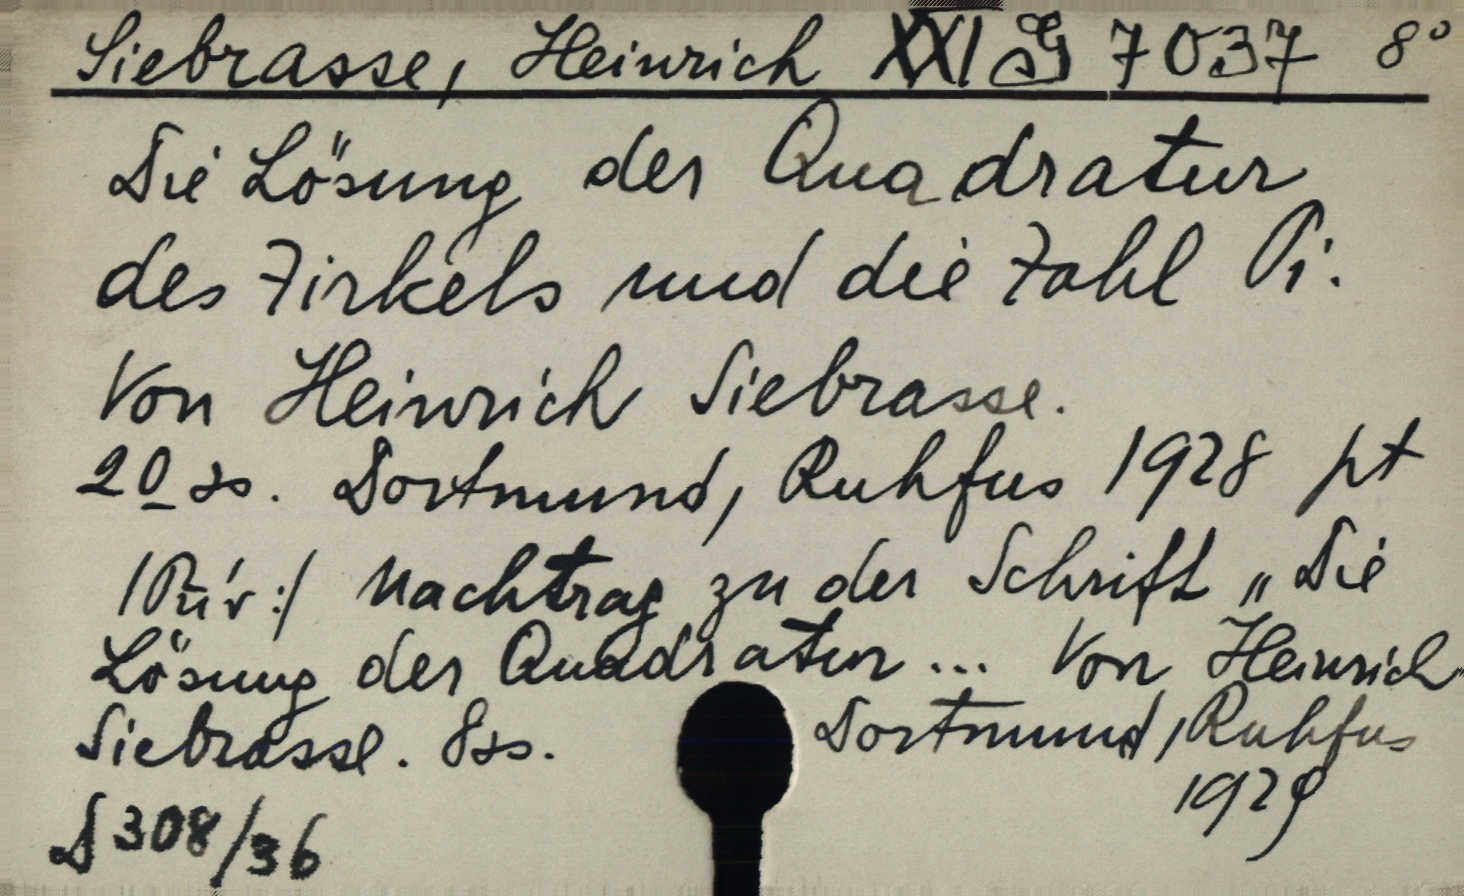 Siebrasse, Heinrich XXI G 7037 8°
Die Lösung der Quadratur
des Zirkels und die Zahl Pi.
Von Heinrich Siebrasse.
20 ss. Dortmund, Ruhfus 1928 pt
Nachtrag zu der Schrift „Die
Lösung der Quadratur ... Von Heinrich
Siebrasse. 8 ss. Dortmund, Ruhfus
1929
D 308/36